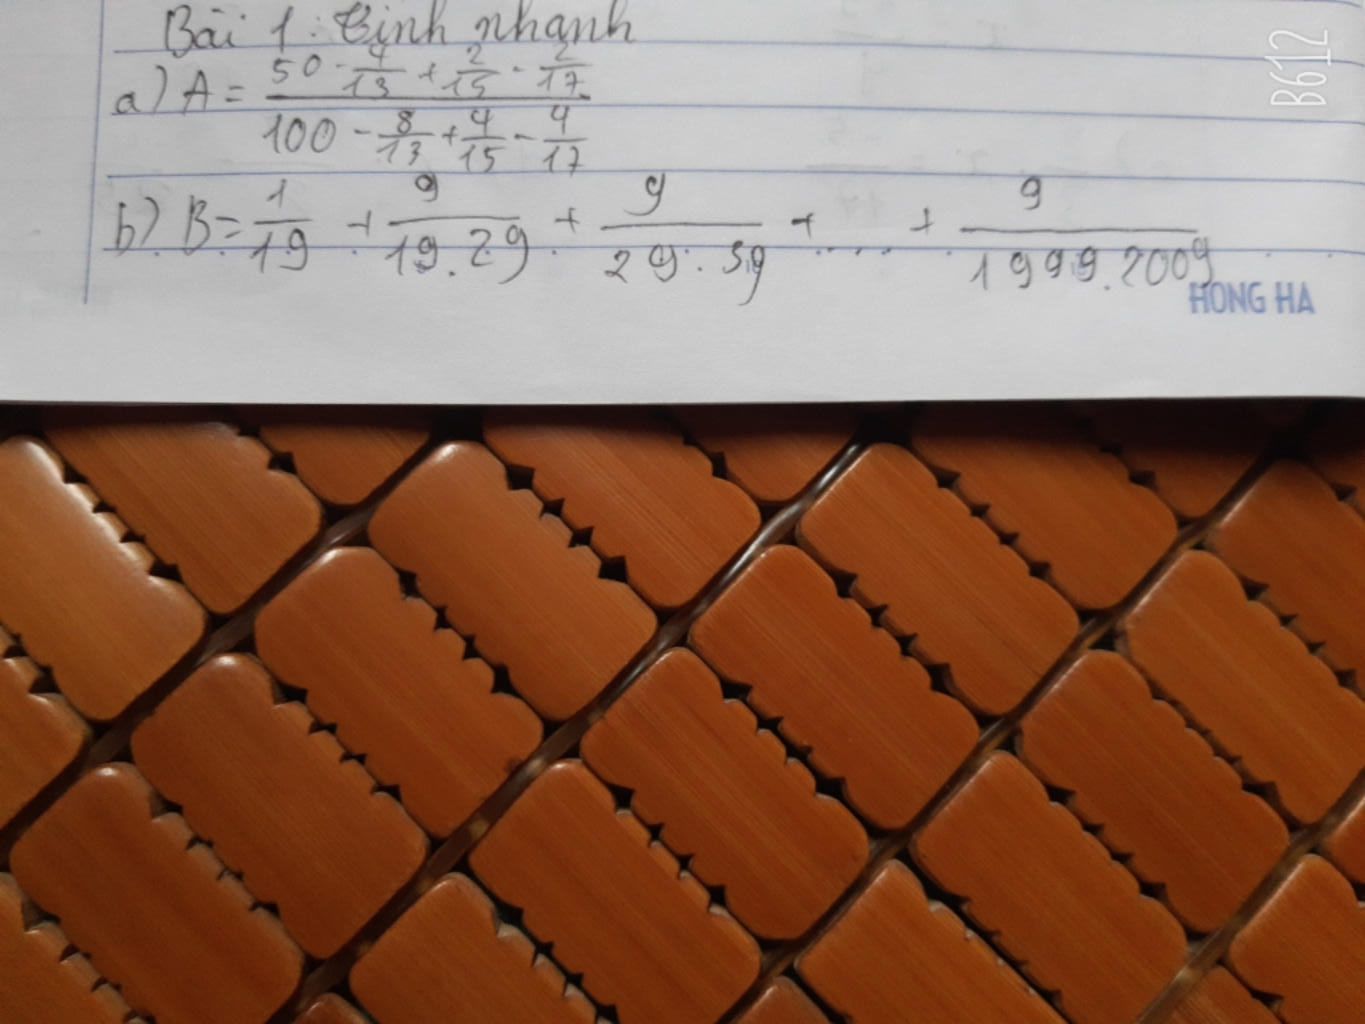 Bài 1: Tính nhanh
a) A = \frac{50 - \frac{4}{13} + \frac{2}{15} - \frac{2}{17}}{100 - \frac{8}{13} + \frac{4}{15} - \frac{4}{17}}
b) B = \frac{1}{19} + \frac{9}{19.29} + \frac{9}{29.39} + .... + \frac{9}{1999.2009}
HONG HA
B612